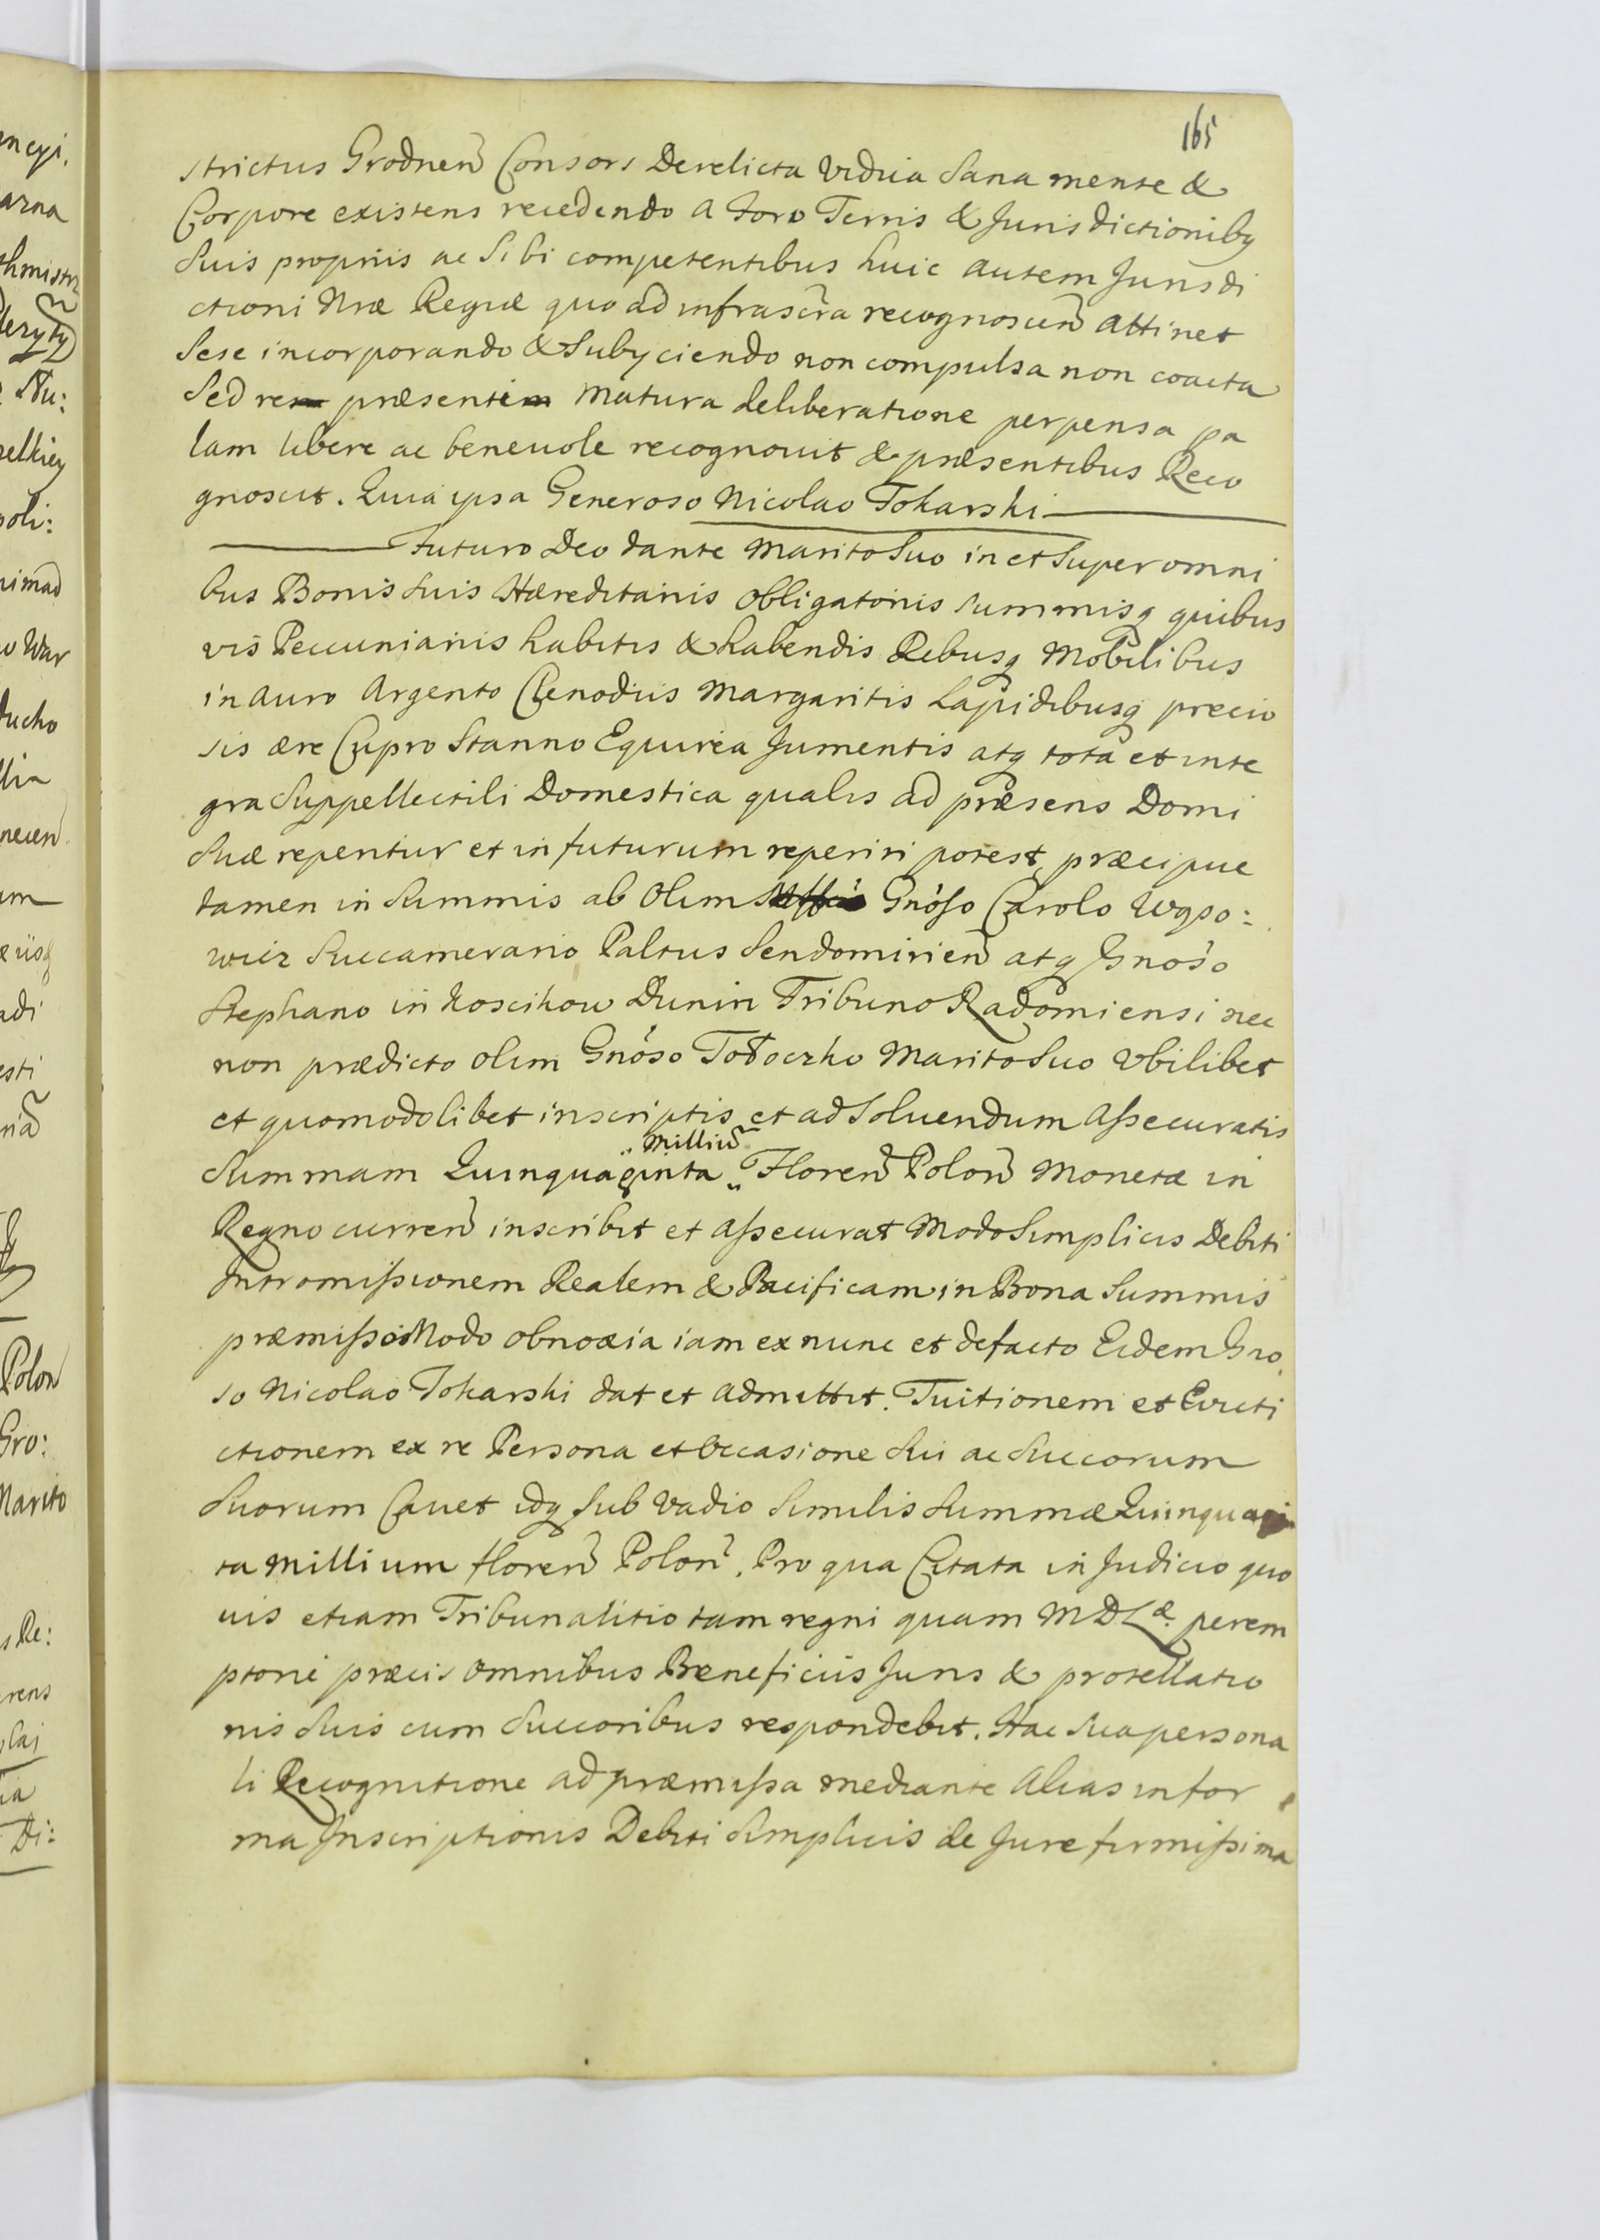 165
strictus Grodnen Consors Derelicta Vidua Sana mente &
Corpore existens recedendo a Foro Terris & Jurisdictioniby
Suis proprijs ac Sibi competentibus huic autem Jurisdi
ctioni Nræ Regiæ quo ad infrascra recognoscen attinet
Sese incorporando & Subyciendo non compulsa non coacta
Sed re præsenti Matura deliberatione perpensa pa
lam libere ac beneuole recognouit & præsentibus Reco
gnoscit. Quia ipsa Generoso Nicolao Tokarski
Futuro Deo dante Marito Suo in et Super omni
bus Bonis Suis Hæreditarijs Obligatorijs Summisq quibus
vis Peccuniarijs habitis & habendis Rebusq Mobilibus
in Auro Argento Clenodiis Margaritis Lapidibusq precio
sis ære Cupro Stanno Equirea Jumentis atq tota et inte
gra Suppellectili Domestica qualis ad præsens Domi
Suæ reperitur et in futurum reperiri potest, præcipue
tamen in Summis ab Olim Gnoso Carolo Wyso:
wicz Succamerario Paltus Sendomirien atq Gnoso
Stephano in Koscikow Dunin Tribuno Radomiensi nec
non prædicto olim Gnoso Tołoczko Marito Suo Vbilibet
et quomodolibet inscriptis et ad Soluendum Assecuratis
Summam Quinquaginta „ Milliū „ Floren Polon Monetæ in
Regno curren inscribit et assecurat Modo Simplicis Debiti
Intromissionem Realem & Pacificam in Bona Summis
præmisso Modo obnoxia iam ex nunc et defacto Eidem Gno
so Nicolao Tokarski dat et admittit. Tuitionem et Evicti
ctionem ex re Persona et Occasione Sui ac Succorum
Suorum Cauet idq Sub Vadio Similis Summæ Quinquagi
ta Millium floren Polon. Pro qua Citata in Judicio quo
uis etiam Tribunalitio tam regni quam M D Læ. perem
ptorie præcis Omnibus Beneficiis Juris & protellatio
nis Suis cum Succoribus respondebit. Hac Sua persona
li Recognitione ad præmissa mediante Alias in for
ma Inscriptionis Debiti Simplicis de Jure firmissima